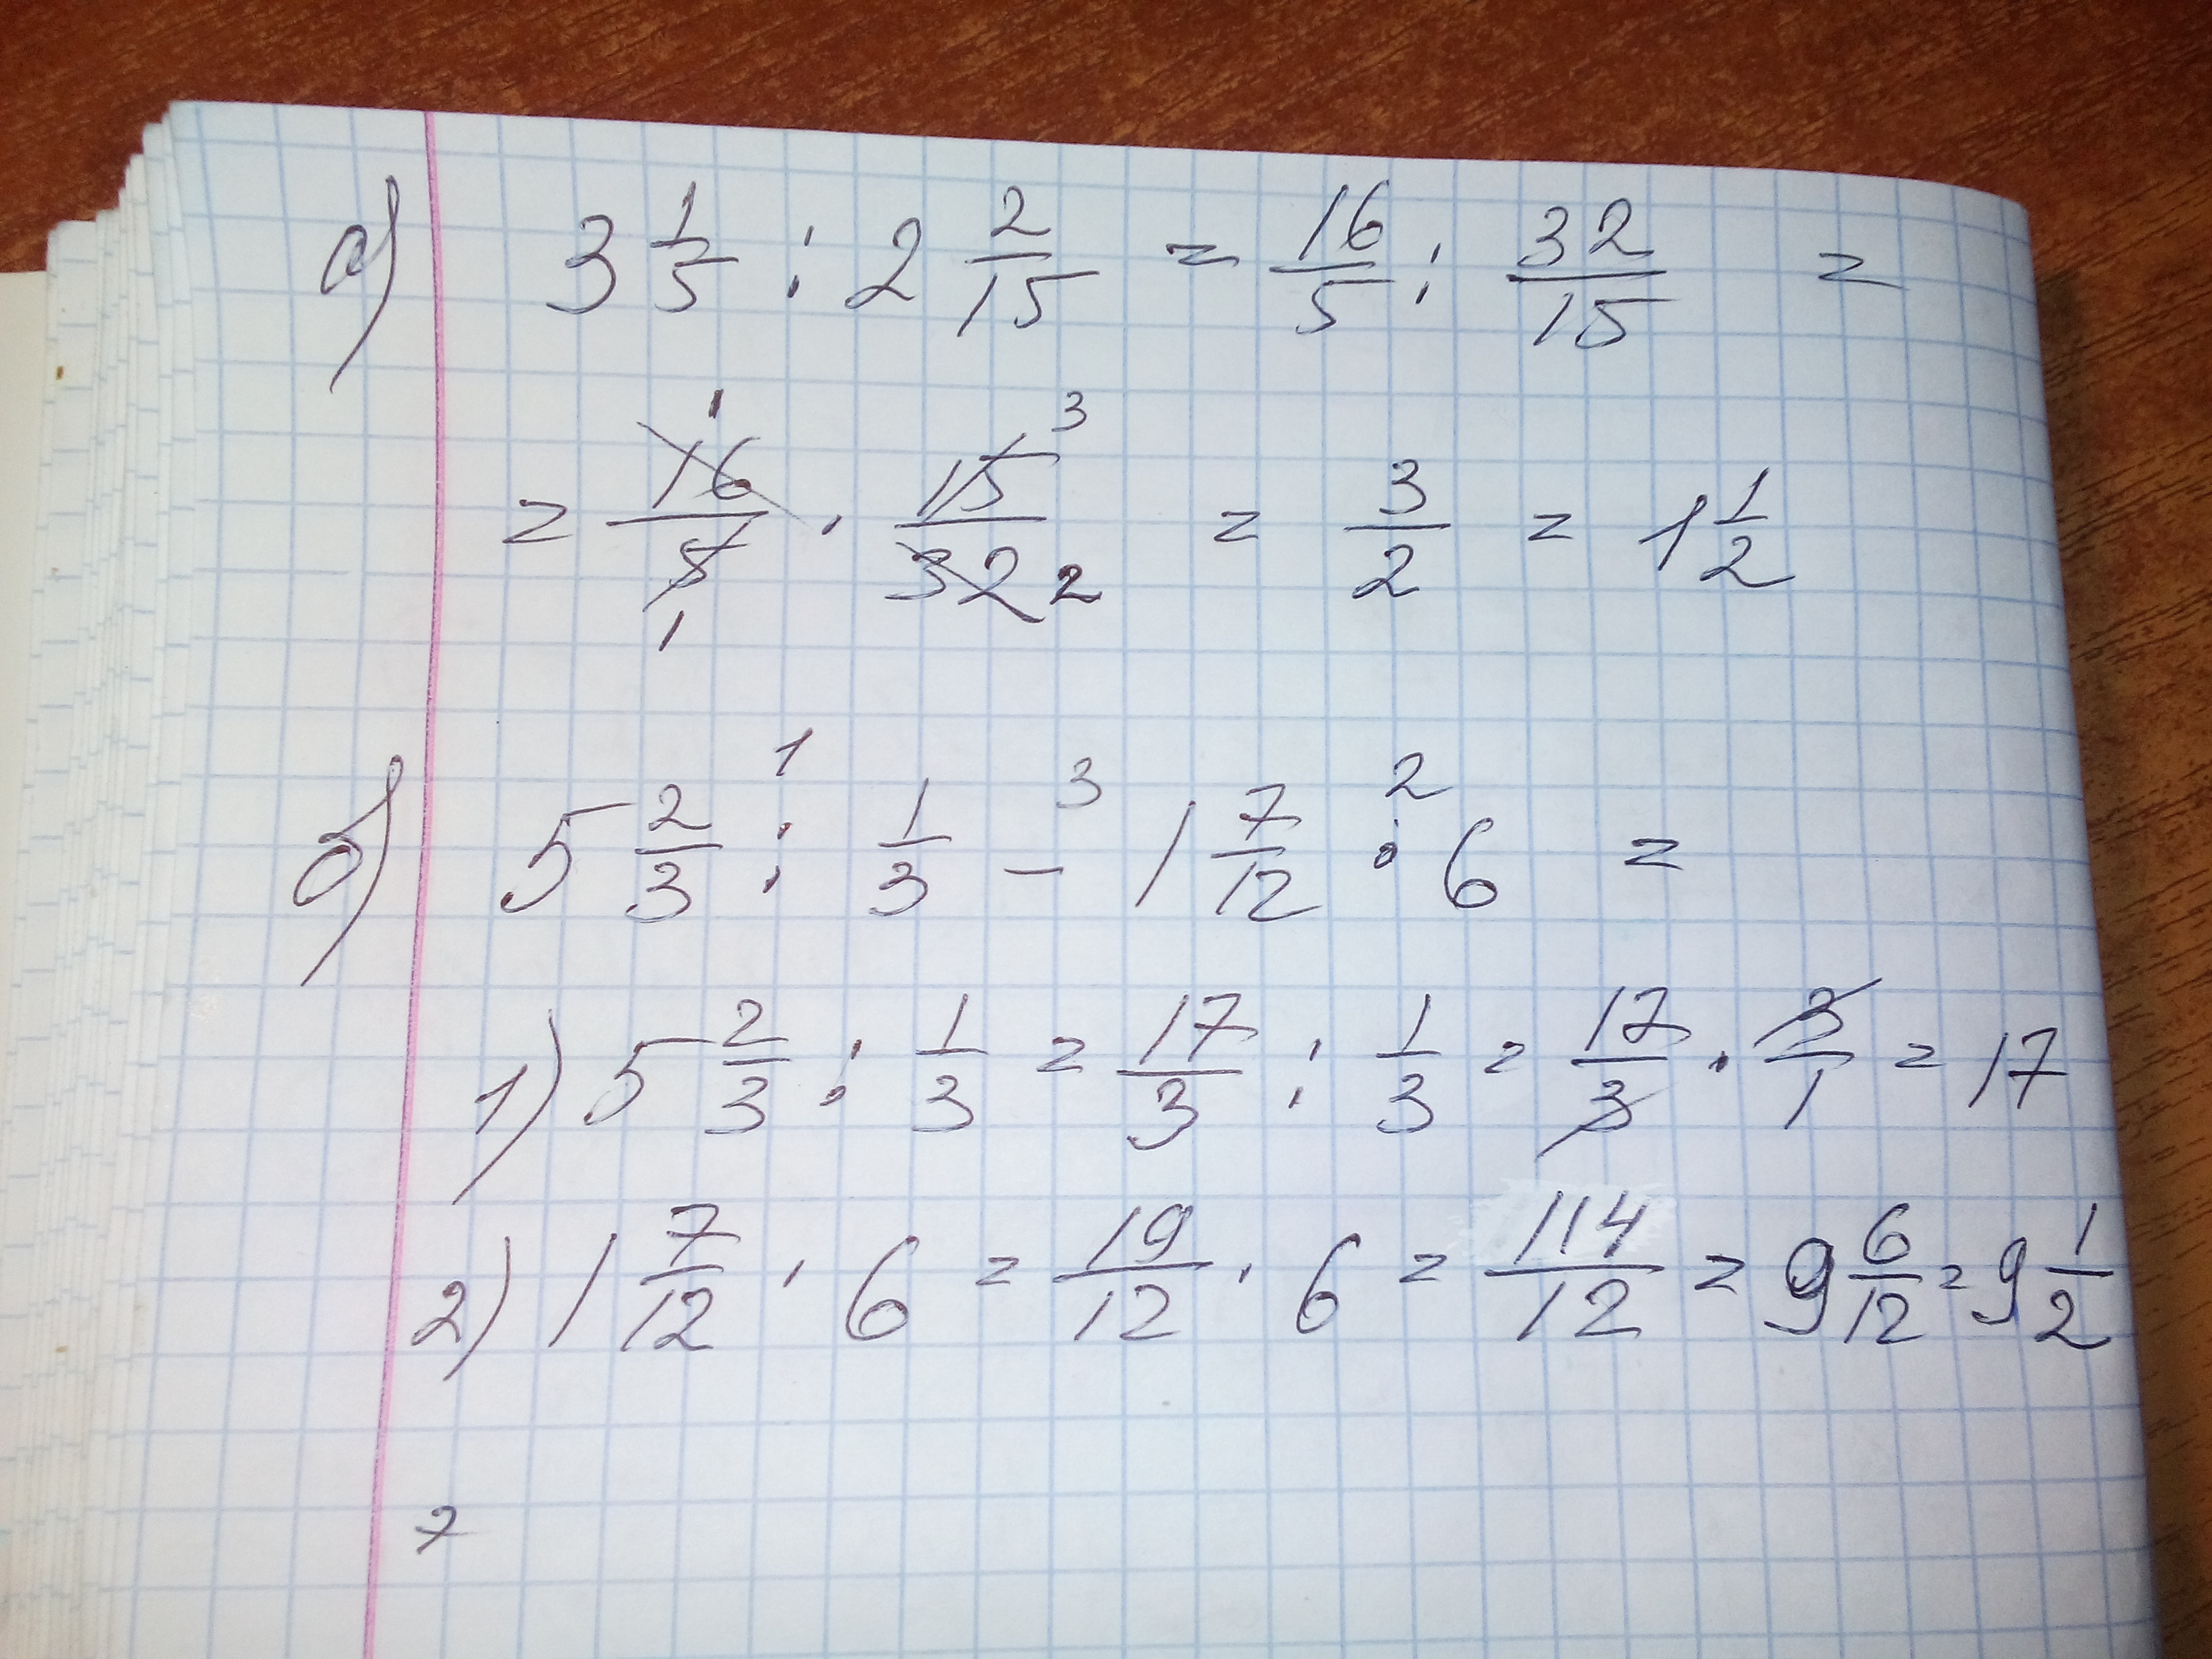 а) 3 1/5 : 2 2/15 = 16/5 : 32/15 =
= 16/5 · 15/32 = 3/2 = 1 1/2
1 3
1 2
1 3 2
б) 5 2/3 : 1/3 - 1 7/12 · 6 =
1) 5 2/3 : 1/3 = 17/3 : 1/3 = 17/3 · 3/1 = 17
2) 1 7/12 · 6 = 19/12 · 6 = 114/12 = 9 6/12 = 9 1/2